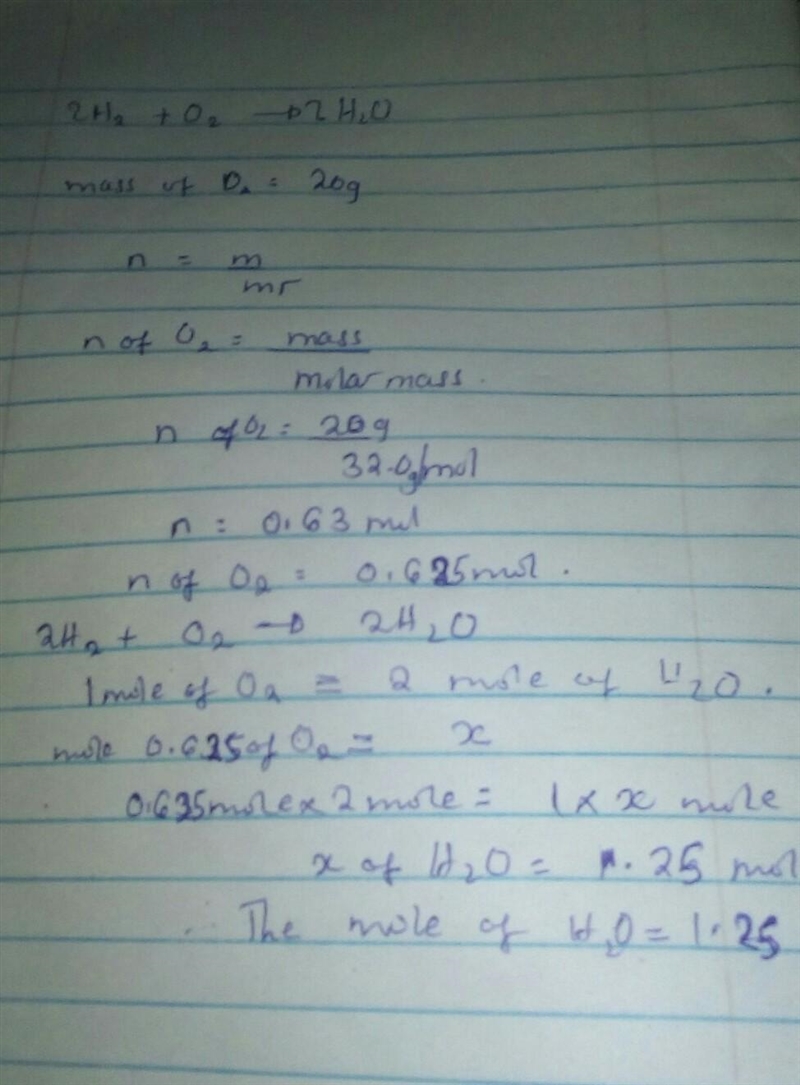 2H₂ + O₂ → 2H₂O
mass of O₂ = 20g
n = m
mr
n of O₂ = mass
molar mass.
n of O₂ = 20g
32.0g/mol
n = 0.63 mol
n of O₂ = 0.625mol.
2H₂ + O₂ → 2H₂O
1mole of O₂ = 2 mole of H₂O.
mole 0.625 of O₂ = x
0.625mole x 2mole = 1 x x mole
x of H₂O = 1.25 mol
∴ The mole of H₂O = 1.25